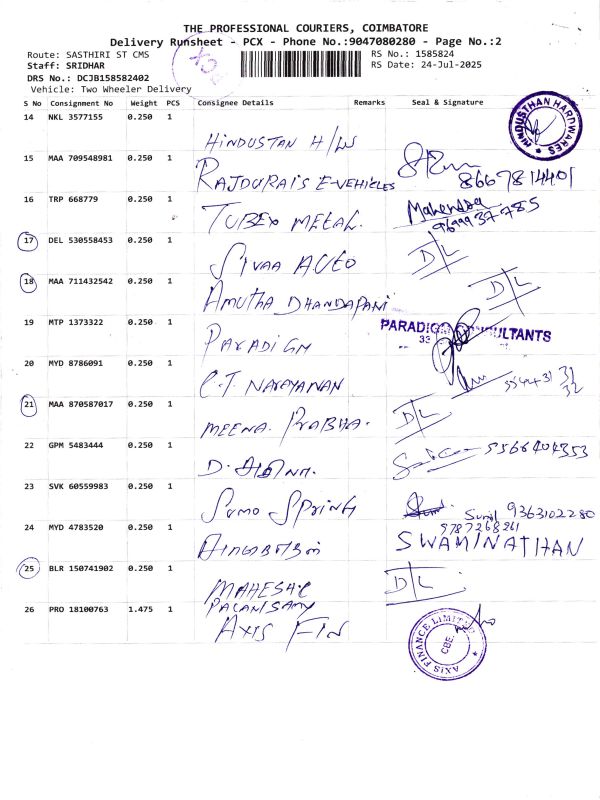 THE PROFESSIONAL COURIERS, COIMBATORE
Delivery Runsheet - PCX - Phone No.:9047080280 - Page No.:2
Route: SASTHIRI ST CMS
RS No.: 1585824
Staff: SRIDHAR
RS Date: 24-Jul-2025
DRS No.: DCJB158582402
Vehicle: Two Wheeler Delivery
PCX
S No Consignment No Weight PCS Consignee Details Remarks Seal & Signature
14 NKL 3577155 0.250 1 HINDUSTAN H/WS HINDUSTHAN HARDWARES
15 MAA 709548981 0.250 1 RAJDURAIS E-VEHICLES 8667814401
16 TRP 668779 0.250 1 TUBEX METAL. Mahendra
17 DEL 530558453 0.250 1 SIVAA AUTO D/L
18 MAA 711432542 0.250 1 AMUTHA DHANDAPANI D/L
19 MTP 1373322 0.250 1 PARADIGM PARADIGM CONSULTANTS
20 MYD 8786091 0.250 1 C.T. NARAYANAN
21 MAA 870587017 0.250 1 MEENA. PRABHA. D/L
22 GPM 5483444 0.250 1 D. 9566404353
23 SVK 60559983 0.250 1 SUMO SPRING Sunil 9363102280
24 MYD 4783520 0.250 1 9787268261 SWAMINATHAN
25 BLR 150741902 0.250 1 MAHESH.C D/L
PALANISAMY
26 PRO 18100763 1.475 1 AXIS FIN AXIS FINANCE LIMITED CBE.